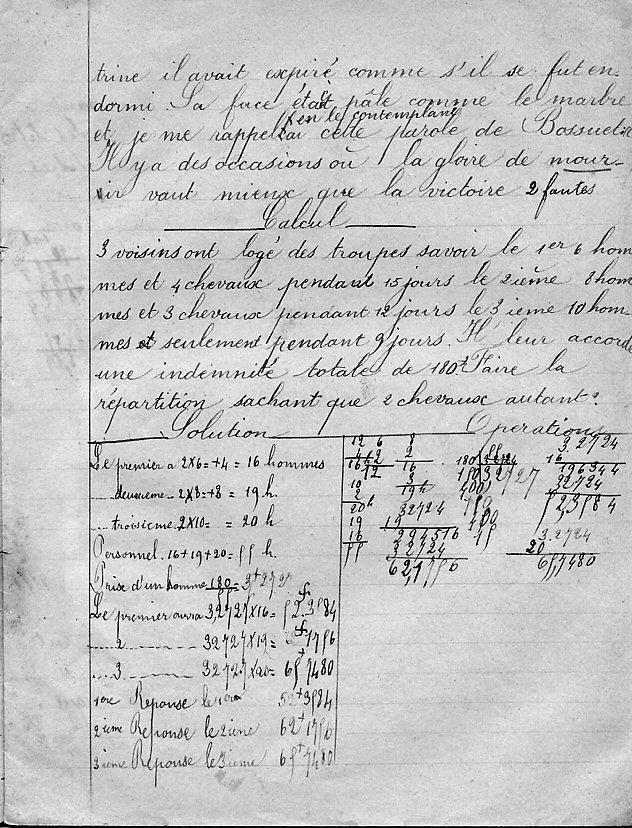 trine il avait expiré comme s'il se fut en-
dormi. Sa face était pâle comme le marbre
en le contemplant
et je me rappelai cette parole de Bossuet
Il y a des occasions où la gloire de mour-
rir vaut mieux que la victoire 2 fautes
Calcul
3 voisins ont logé des troupes savoir le 1er 6 hom
mes et 4 chevaux pendant 15 jours le 2ième 8 hom
mes et 3 chevaux pendant 12 jours le 3ième 10 hom-
mes et seulement pendant 9 jours. Il leur accorde
une indemnité totale de 180f. Faire la
répartition sachant que 2 chevaux autant.
Solution
Le premier a 2x6=+4= 16 hommes
deuxième 2x8=+8= 19 h.
troisième 2x10= = 20 h
Personnel. 16+19+20= 55 h.
Prise d'un homme 180 = 3f2727
Le premier aura 3,2727x16= 52f3584
2 32727x19= 62f1756
3 32727x20= 65f7480
1ere Reponse le 1er 52f3584
2ieme Reponse le 2ieme 62f1756
3ieme Reponse le 3ieme 65f7480
Operations
12 6 8
16 h 12 16
10 3
2 19h
20h
19
16
55
32724
19
294516
32724
621756
180
32727
32724
16
196344
32724
523584
32724
20
657480